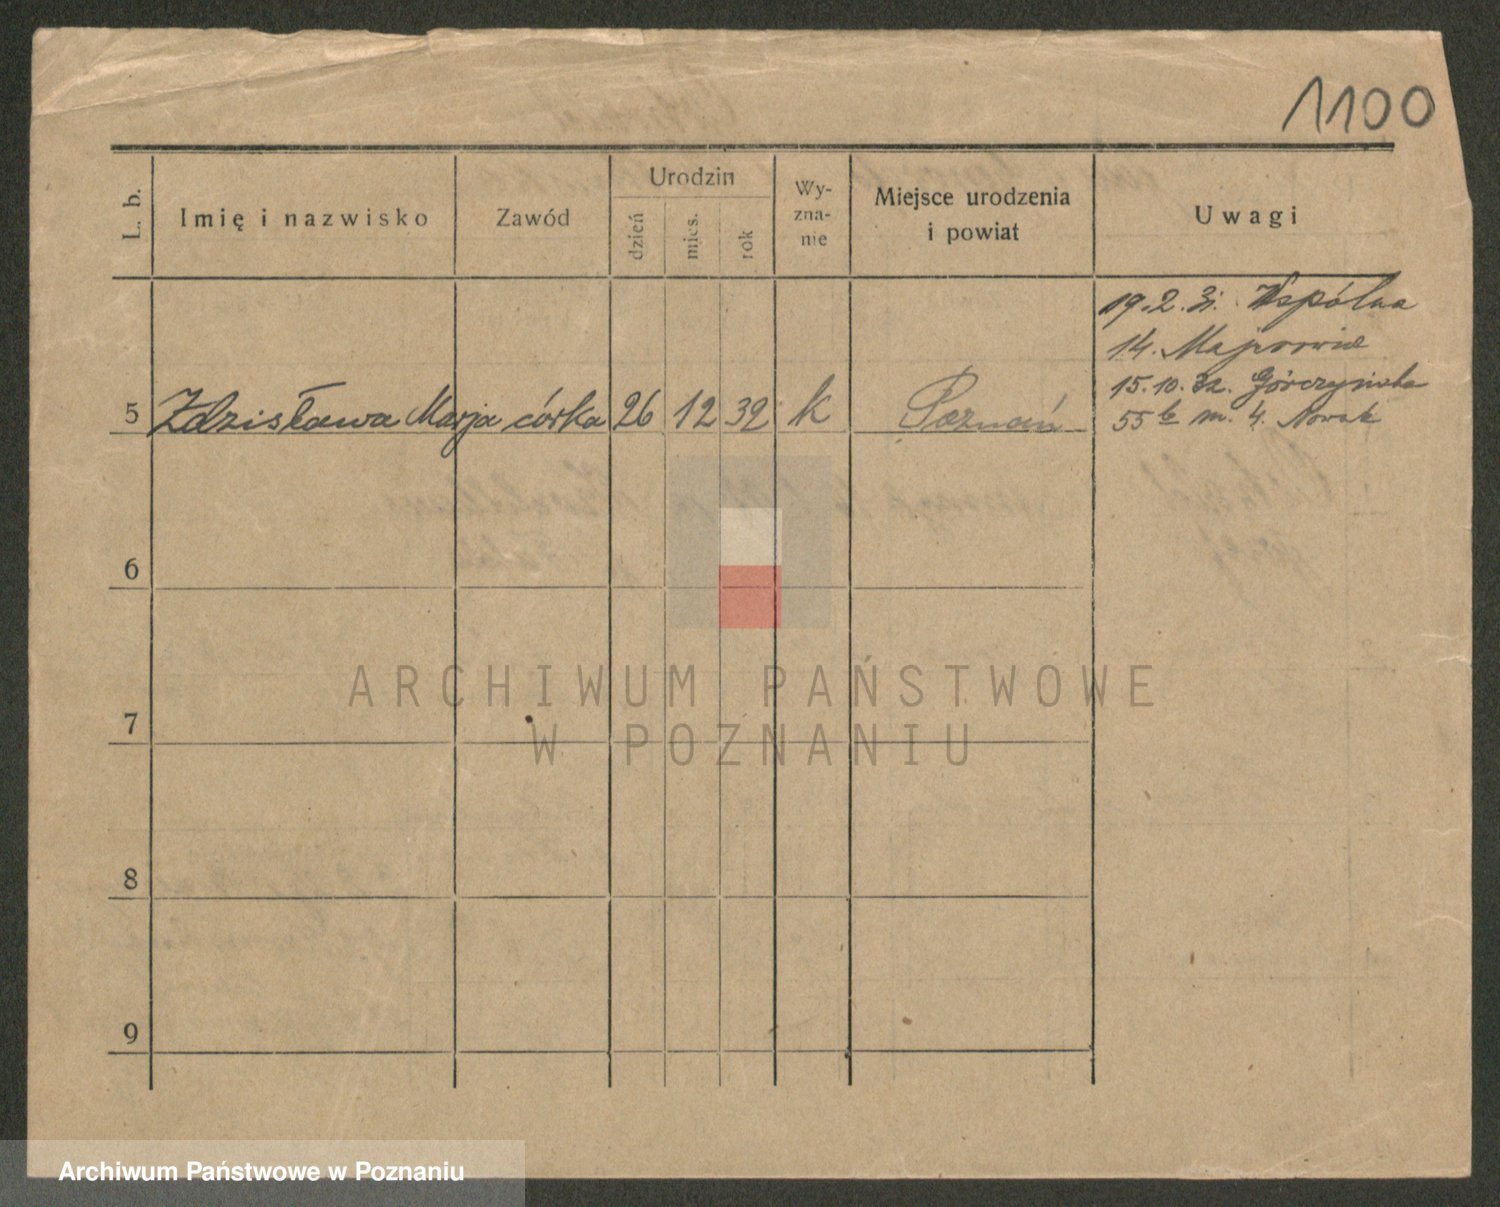 1100
L. b.
Imię i nazwisko
Zawód
Urodzin
dzień
mies.
rok
Wy-
zna-
nie
Miejsce urodzenia
i powiat
Uwagi
19.2.31. Wspólna
14. Majorowicz
15.10.32. Górczyńska
55 b m. 4. Nowak
5 Zdzisława Marja córka 26 12 32 k Poznań
6
7
8
9
ARCHIWUM PAŃSTWOWE
W POZNANIU
Archiwum Państwowe w Poznaniu